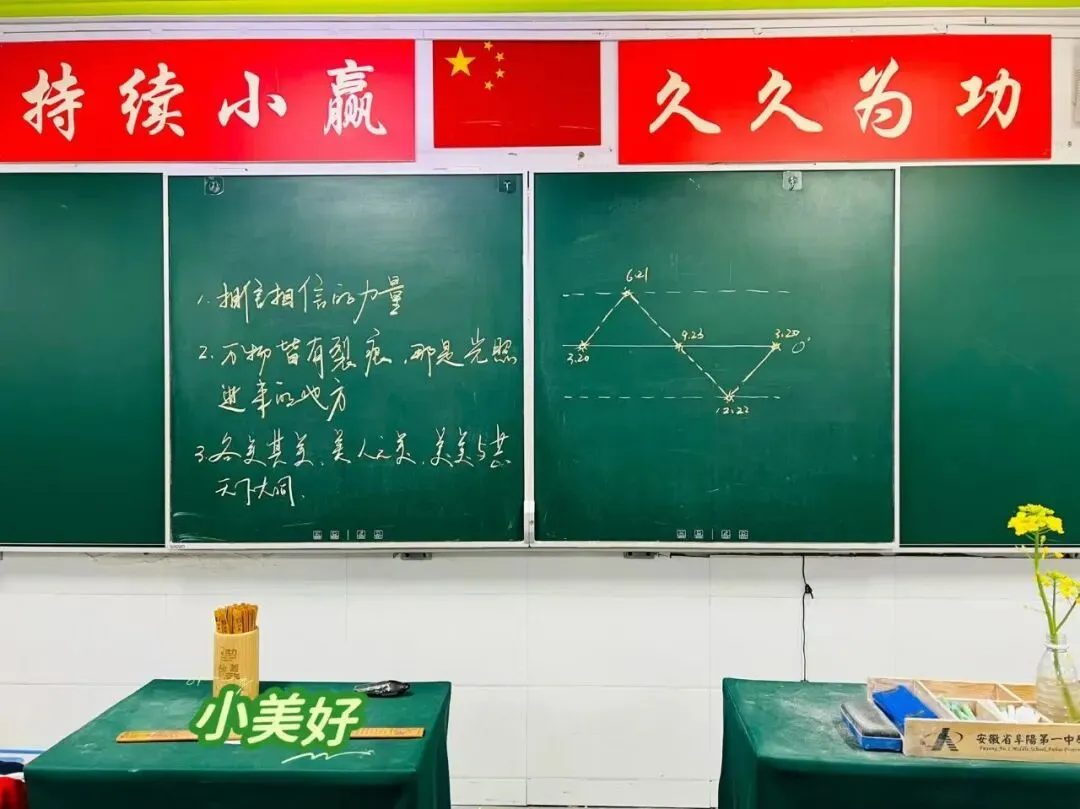 持续小赢
久久为功
1. 拥信相信的力量
2. 万物皆有裂痕，那是光照
进来的地方
3. 各美其美，美人之美，美美与共
天下大同.
6.21
9.23
3.20
0°
3.20
12.22
小美好
安徽省阜陽第一中學